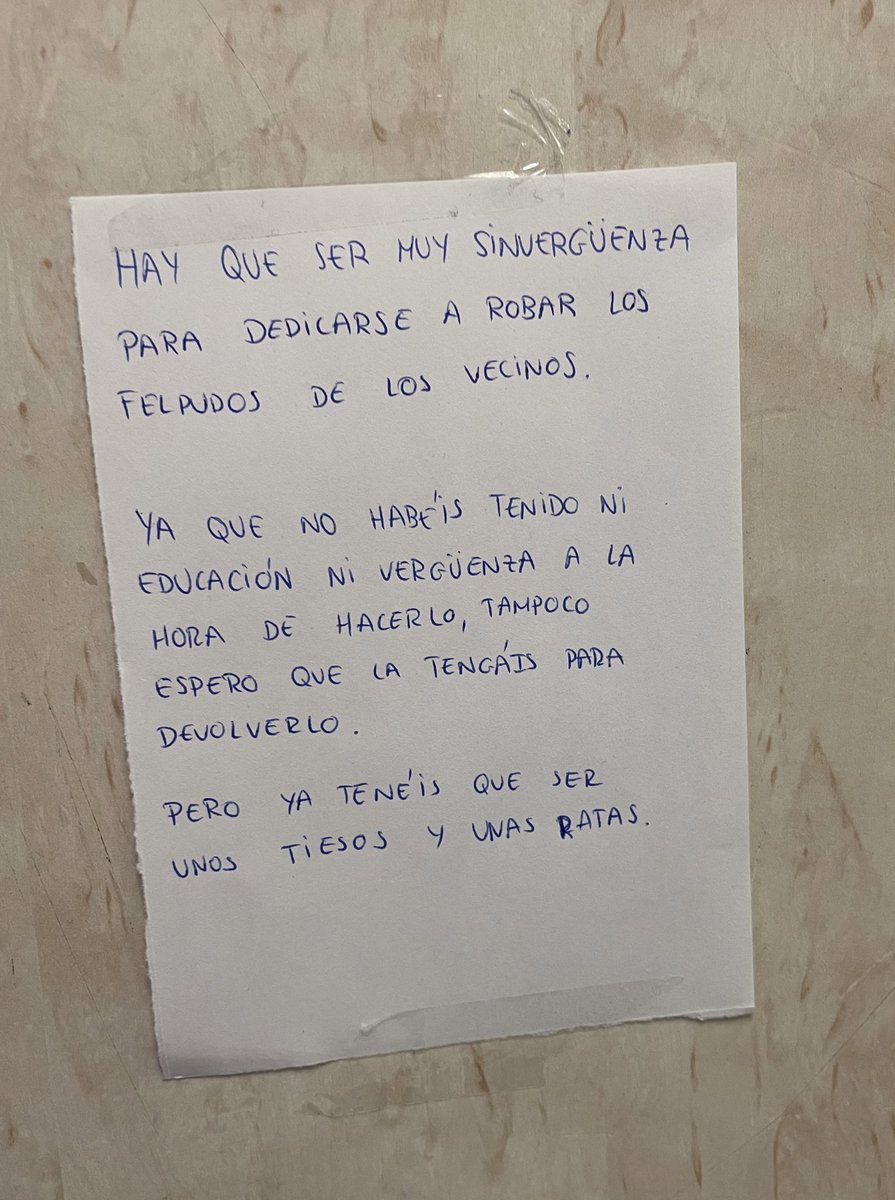 HAY QUE SER MUY SINVERGÜENZA
PARA DEDICARSE A ROBAR LOS
FELPUDOS DE LOS VECINOS.
YA QUE NO HABÉIS TENIDO NI
EDUCACIÓN NI VERGÜENZA A LA
HORA DE HACERLO, TAMPOCO
ESPERO QUE LA TENGÁIS PARA
DEVOLVERLO.
PERO YA TENÉIS QUE SER
UNOS TIESOS Y UNAS RATAS.